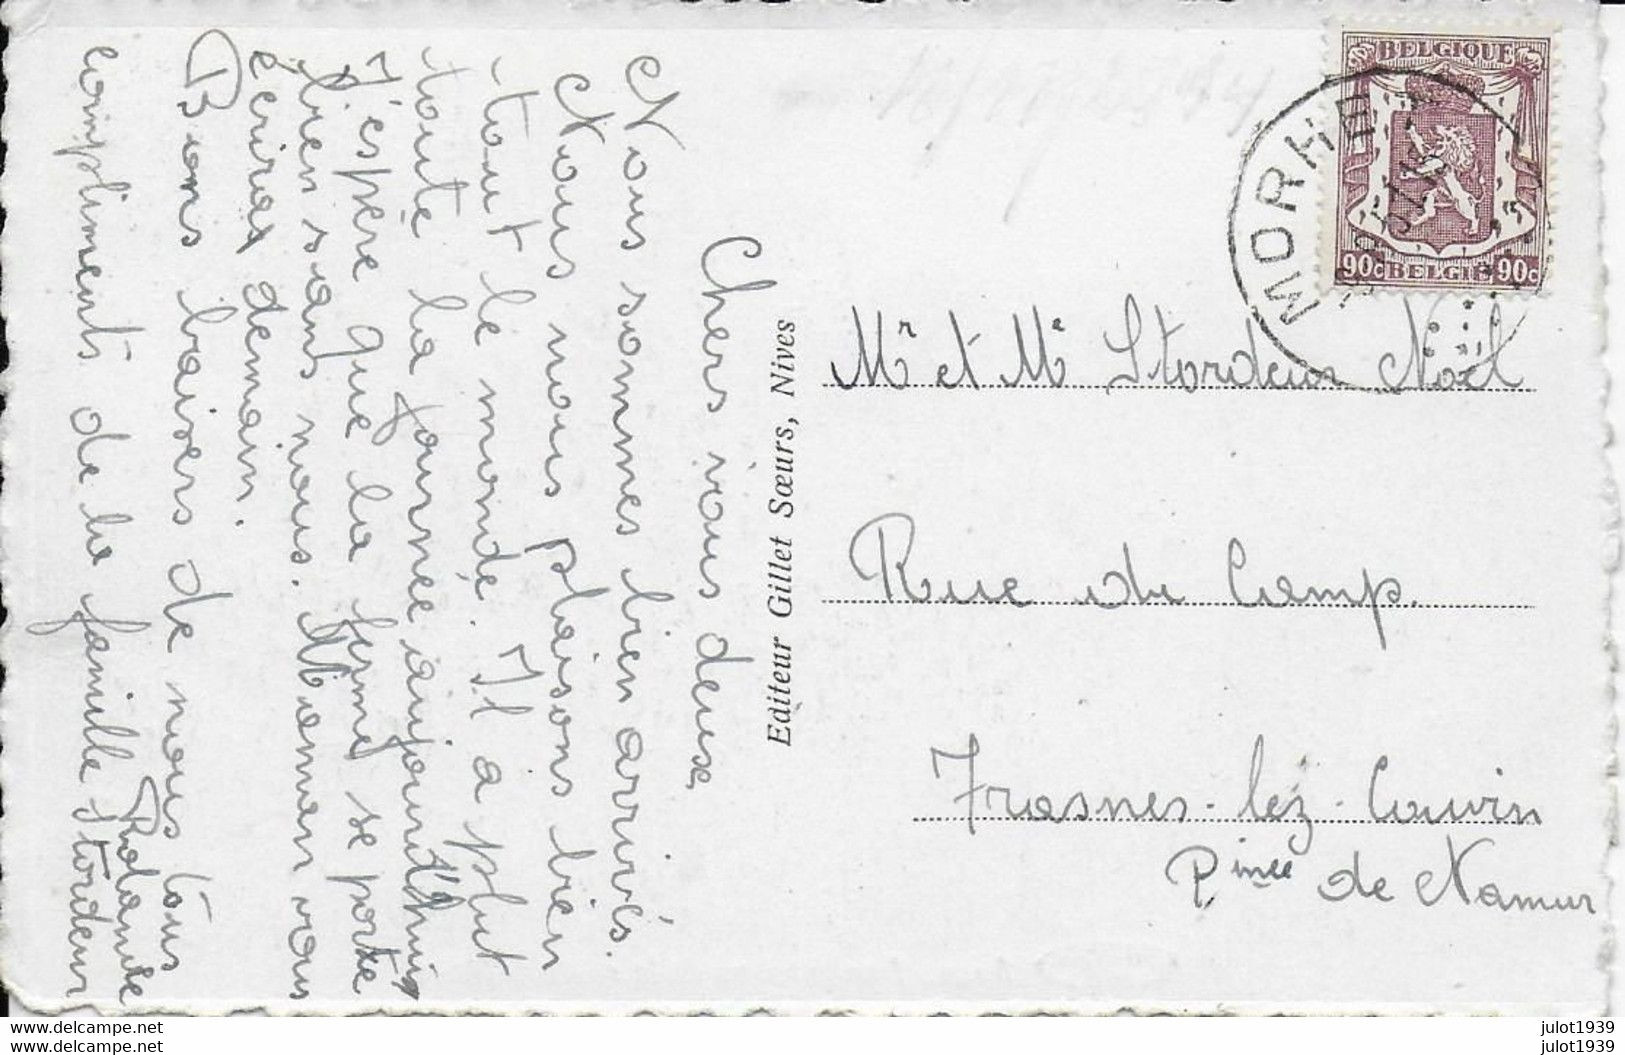 Chers vous deux,
Nous sommes bien arrivés.
Nous nous plaisons bien
tout le monde. Il a plut
toute la journée aujourd'hui
J'espère que la femel se porte
bien sans nous. Maman vous
écrira demain.
Bons baisers de nous tous
Rolande
compliments de la famille Stordeur
Editeur Gillet Sœurs, Nives
BELGIQUE
90c BELGIE 90c
MORHE
Mr et Me Stordeur Noël
Rue du Camp.
Frasnes-lez-Couvin
Pince de Namur
www.delcampe.net
www.delcampe.net
julot1939
julot1939